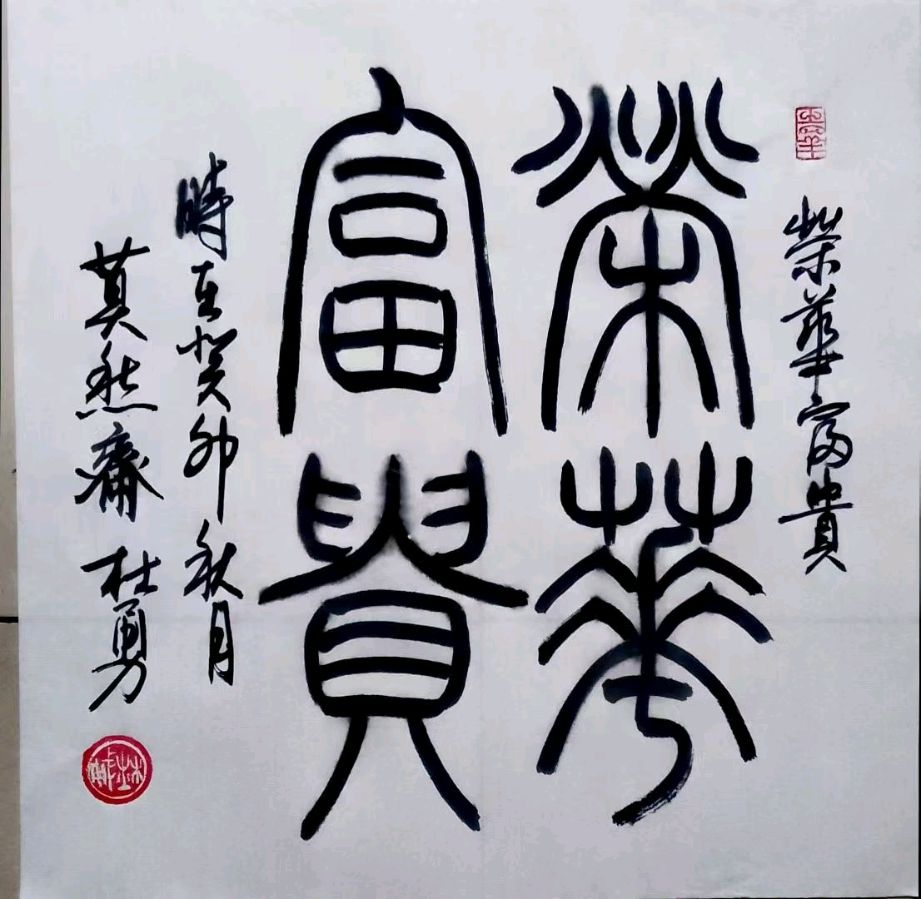 榮華富貴
榮華
富貴
時在癸卯秋月
莫然齋 杜勇